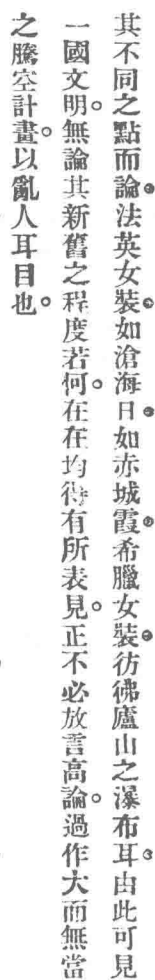 其不同之點而論法英女裝如滄海日如赤城霞希臘女裝彷彿廬山之瀑布耳由此可見
一國文明。無論其新舊之程度若何。在在均得有所表見。正不必放言高論。過作大而無當
之騰空計畫。以亂人耳目也。